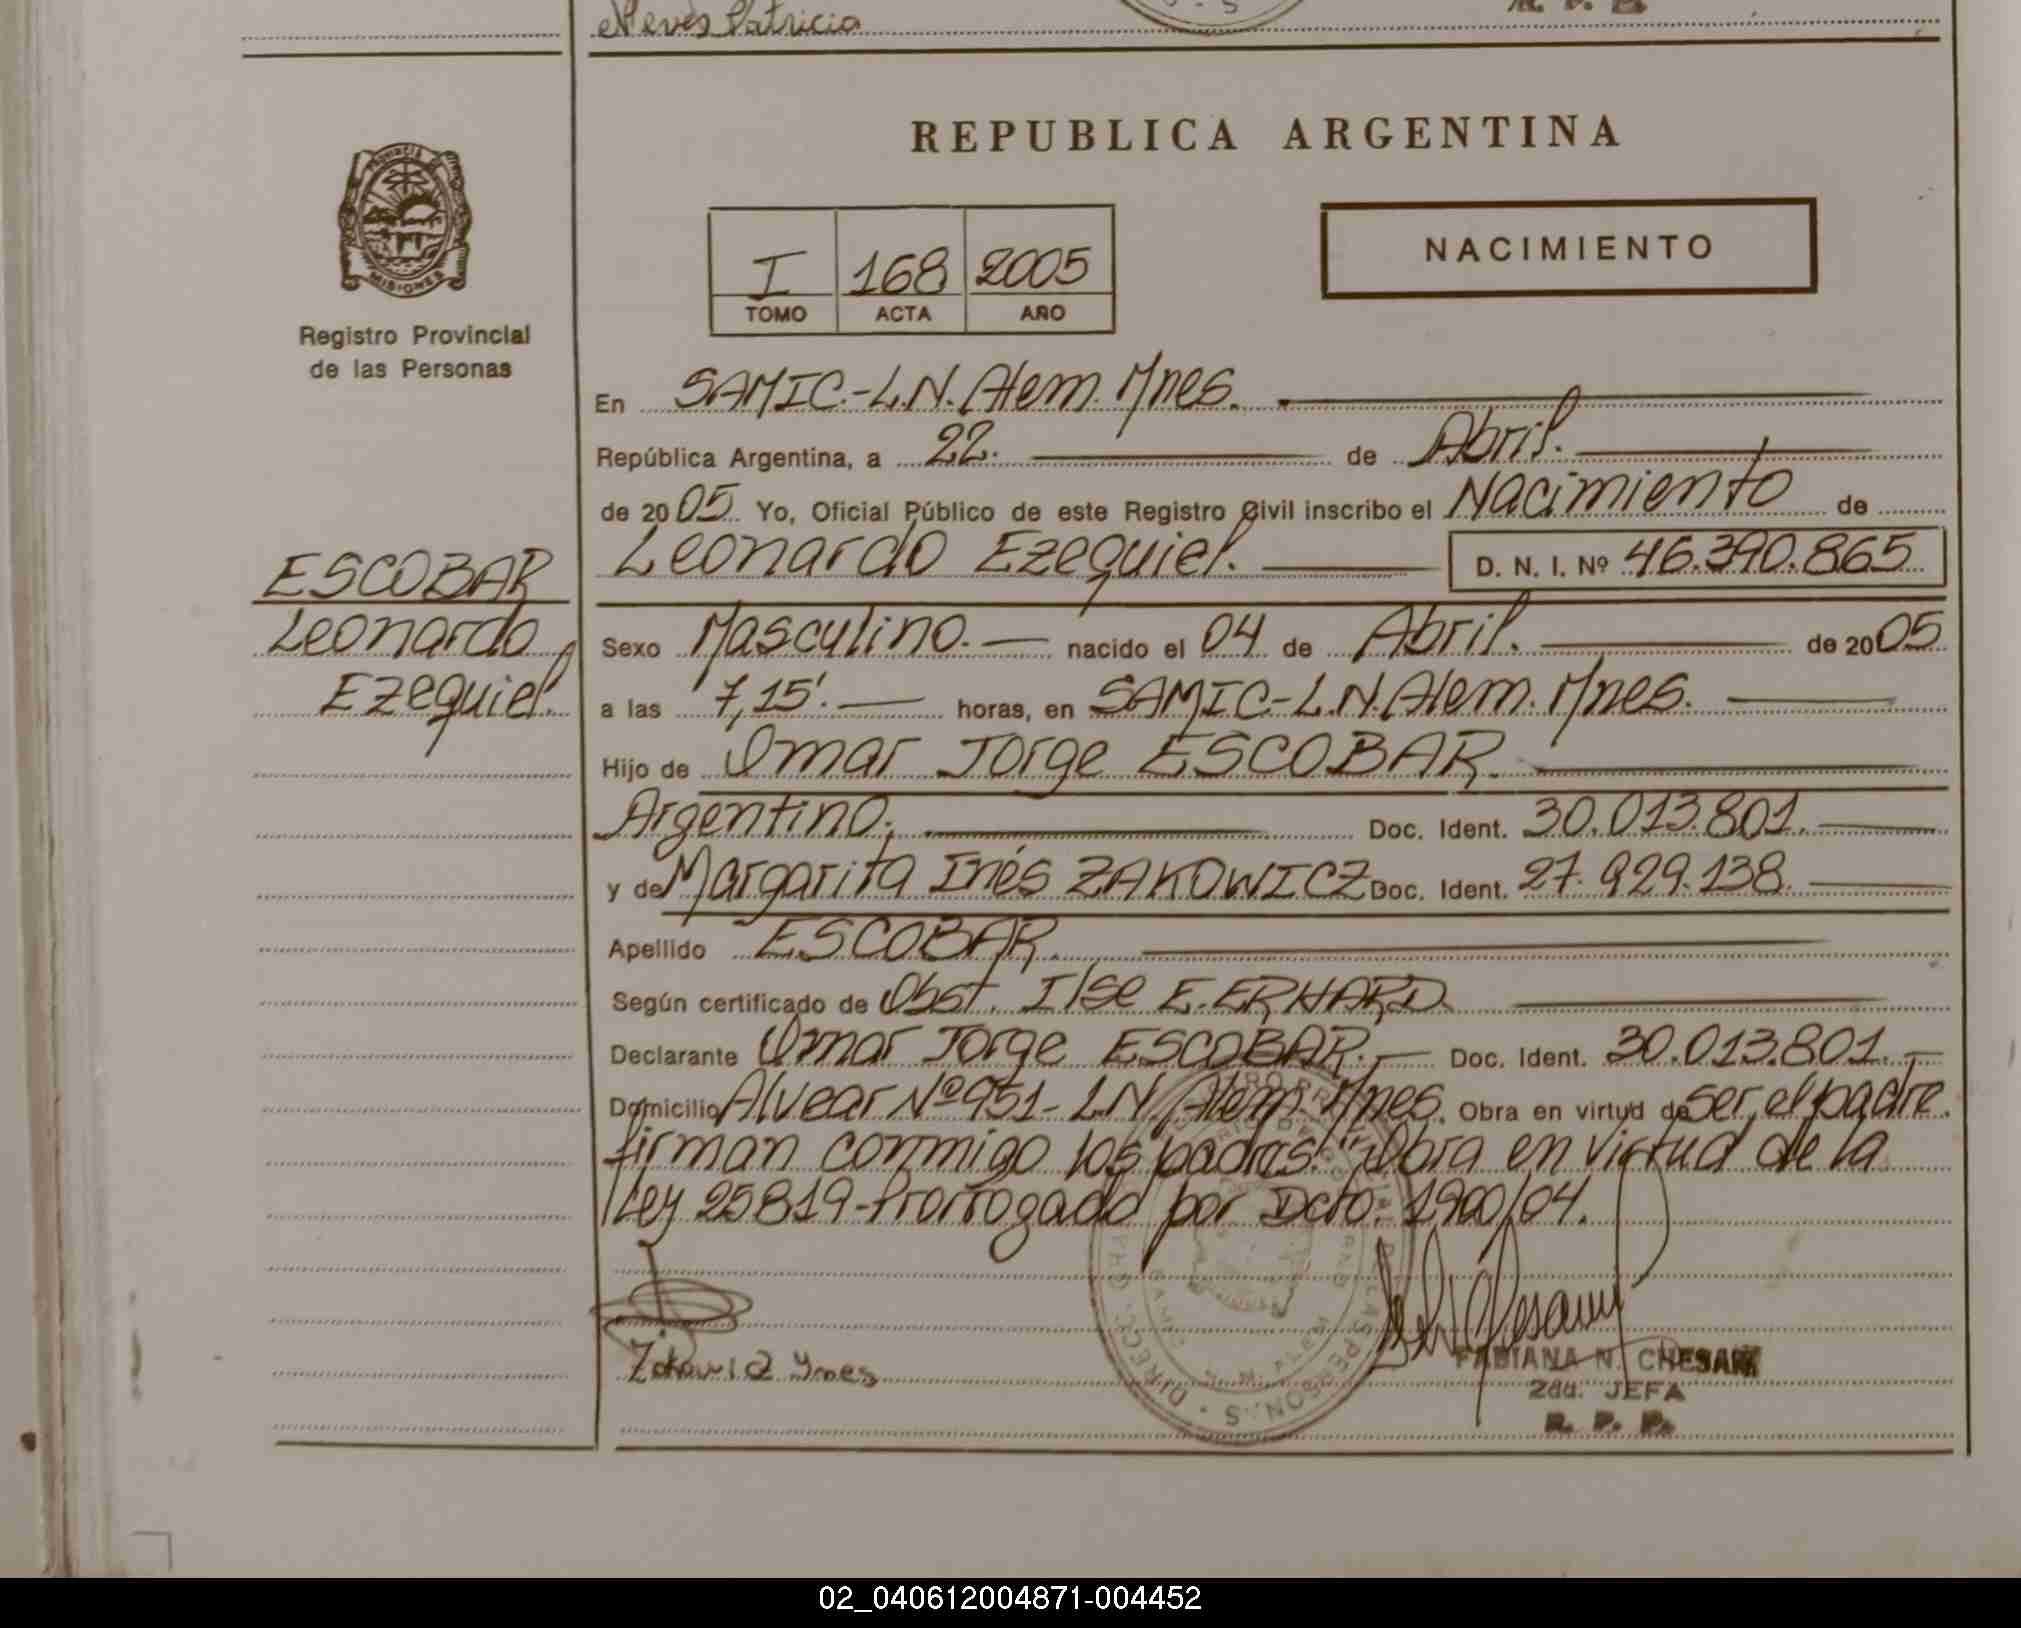 Neves Patricia
REPUBLICA ARGENTINA
PROVINCIA DE
MISIONES
Registro Provincial
de las Personas
I 168 2005
TOMO ACTA AÑO
NACIMIENTO
En SAMIC.-L.N.Alem.Mnes.
República Argentina, a 22. de Abril.
de 2005 Yo, Oficial Público de este Registro Civil inscribo el Nacimiento de
Leonardo Ezequiel. D. N. I. Nº 46.390.865
ESCOBAR
Leonardo
Ezequiel.
Sexo Masculino. nacido el 04 de Abril. de 2005
a las 7,15'. horas, en SAMIC-L.N.Alem.Mnes.
Hijo de Omar Jorge ESCOBAR.
Argentino; Doc. Ident. 30.013.801.
y de Margarita Inés ZAKOWICZ Doc. Ident. 27.929.138.
Apellido ESCOBAR.
Según certificado de Obst. Ilse E.ERHARD.
Declarante Omar Jorge ESCOBAR. Doc. Ident. 30.013.801.
Domicilio Alvear Nº951-L.N.Alem.Mnes. Obra en virtud de ser el padre.
firman conmigo los padres. Obra en virtud de la
Ley 25819-Prorrogado por Dcto. 1900/04.
Ynes
FABIANA N. CHESANY
2da. JEFA
R. P. P.
02_040612004871-004452